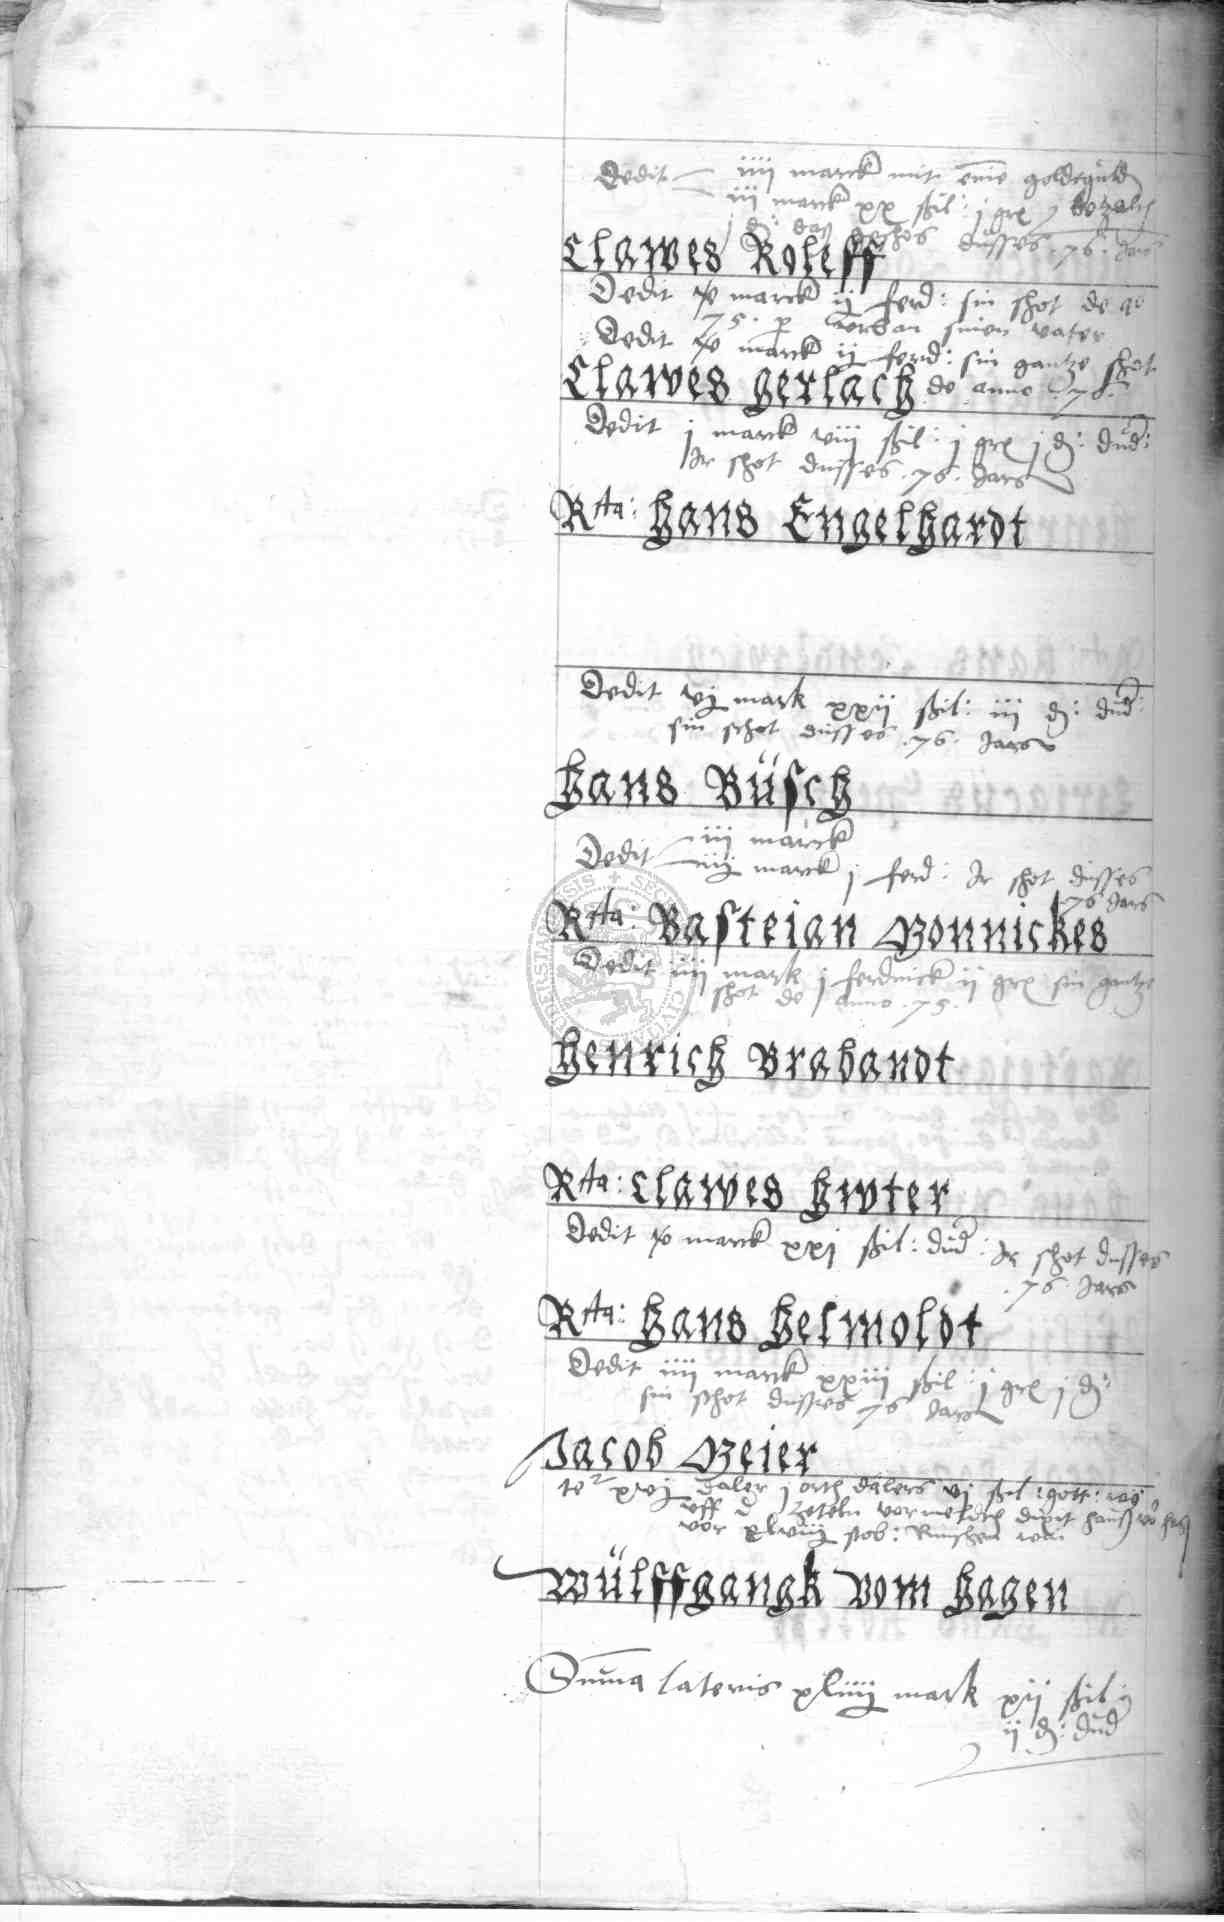 Dedit iiij marck mit eine goldegüld
iij marck xx ßil: j grē
düsses .76. Jars
Clawes Roleff
Dedit marck ij ferd: sin shot de
75. p sinen vater
Dedit marck ij ferd: sin gantze shot
Clawes Gerlach de anno .76.
Dedit j marck viij ßil: j grē j d: düd:
Ir shot düsses .76. Jars
Rta: Hans Engelhardt
Dedit vj mark xxij ßil: iij d: düd:
sin schot düsses .76. Jars
Hans Büsch
Dedit iij marck
iiij marck j ferd: Ir shot düsses
76 Jars
Rta: Basteian Bonnickes
Dedit iiij mark j ferdinck ij grē sin gantze
shot de anno .75.
Henrich Brabandt
Rta: Clawes Hwter
Dedit marck xxj ßil: düd: Ir shot düsses
.76. Jars
Rta: Hans Helmoldt
Dedit iiij marck xxiij ßil: j grē j d:
sin schot düsses 76 Jars
Jacob Beier
xvj daler j orth dalers vj ßil:
uff zeteln
vor xlviij stob:
Wülffgangk vom Hagen
Suma lateris xliiij mark xij ßil:
ij d: düd